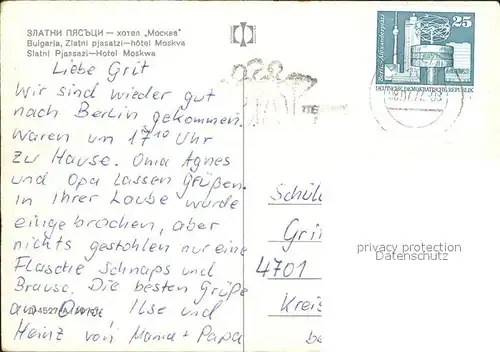 ЗЛАТНИ ПЯСЪЦИ — хотел „Москва"
Bulgaria, Zlatni pjasatzi—hôtel Moskva
Slatni Pjassazi—Hotel Moskwa
Liebe Grit
Wir sind wieder gut
nach Berlin gekommen.
Waren um 17¹⁰ Uhr
zu Hause. Oma Agnes
und Opa lassen grüßen.
In ihrer Laube wurde
eingebrochen, aber
nichts gestohlen nur eine
Flasche Schnaps und
Brause. Die besten Grüße
an Oma Ilse und
Heinz von Mama + Papa
25
Berlin, Alexanderplatz
DEUTSCHE DEMOKRATISCHE REPUBLIK
Schüle
Gri
4701
Kreis
be
privacy protection
Datenschutz